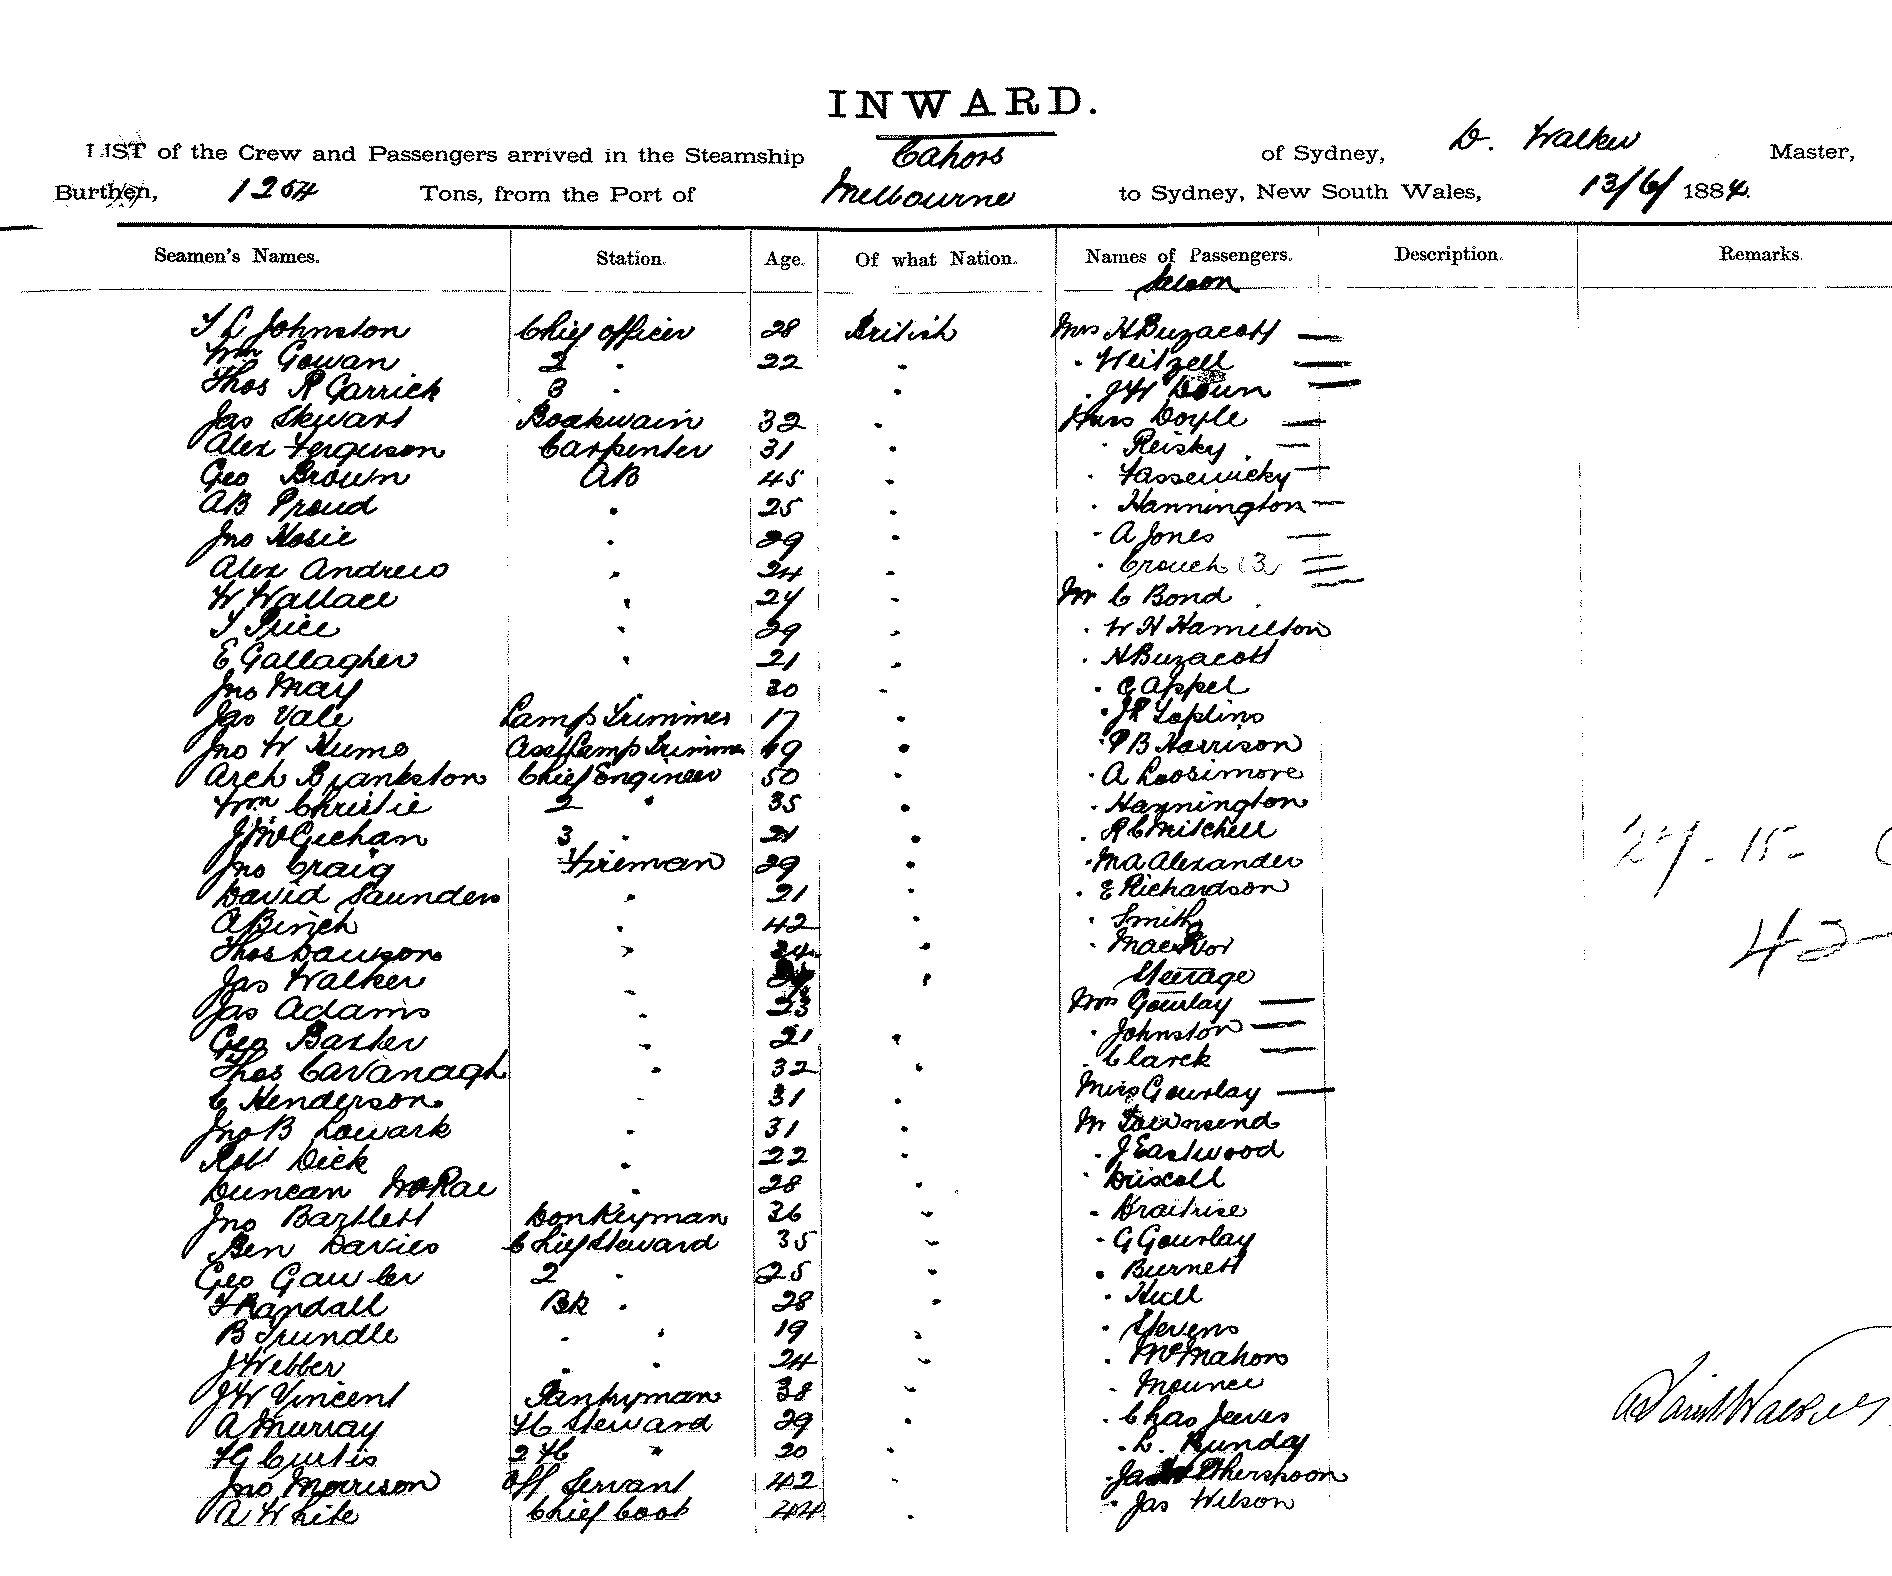 INWARD.
LIST of the Crew and Passengers arrived in the Steamship Cahors of Sydney, D. Walker Master,
Burthen, 1254 Tons, from the Port of Melbourne to Sydney, New South Wales, 13/6/ 1884.
Seamen's Names. Station. Age. Of what Nation. Names of Passengers. Description. Remarks.
Saloon
T C Johnston Chief Officer 28 British Mrs H Buzacott —
Wm Gowan 2 " 22 " " Weitzell —
Thos R Garrick 3 " " J W Down —
Jas Stewart Boatswain 32 " Miss Doyle —
Alex Ferguson Carpenter 31 " " Reisky —
Geo Brown AB 45 " " —
AB Proud " 25 " " Hannington —
Jno Hosie " 29 " " A Jones —
Alex Andrews " 24 " " Crouch (3)
W Wallace " 24 " Mr C Bond
T Price " 29 " " W H Hamilton
E Gallagher " 21 " " H Buzacott
Jno May 30 " " C Appel
Jas Vale Lamp Trimmer 17 " " J R
Jno W Hume Asst Lamp Trimmer 19 " " P B Harrison
Arch Bankston Chief Engineer 50 " " A Loosimore
Wm Christie 2 " 35 " " Hannington
J McGeehan 3 " 21 " " R C Mitchell
Jno Craig Fireman 29 " " M A Alexander
David Saunders " 21 " " E Richardson
A Birch " 42 " " Smith
Thos Dawson " 24 " " MacIvor
Jas Walker " " Steerage
Jas Adams " 23 Mrs Gourlay —
Geo Baxter " 21 " " Johnston —
Thos Cavanagh " 32 " " Clarck —
C Henderson " 31 " Miss Gourlay —
Jno B Lowark " 31 " Mr Townsend
Robt Dick " 22 " " J Eastwood
Duncan McRae " 28 " " Driscoll
Jno Bartlett Donkeyman 36 " "
Ben Davies Chief Steward 35 " " G Gourlay
Geo Gawler 2 " 25 " " Burnett
F Randall BR " 28 " " Hull
B Trundle " " 19 " " Stevens
J Webber " " 24 " " McMahon
J W Vincent Pantryman 38 " " Mounce
A Murray FC Steward 29 " " Chas Jeeves
F G Curtis 2 FC " 20 " " L. Runday
Jno Morrison Off Servant 42 " " Jas Wetherspoon
A White Chief Cook 44 " " Jas Wilson
27-15-
42-